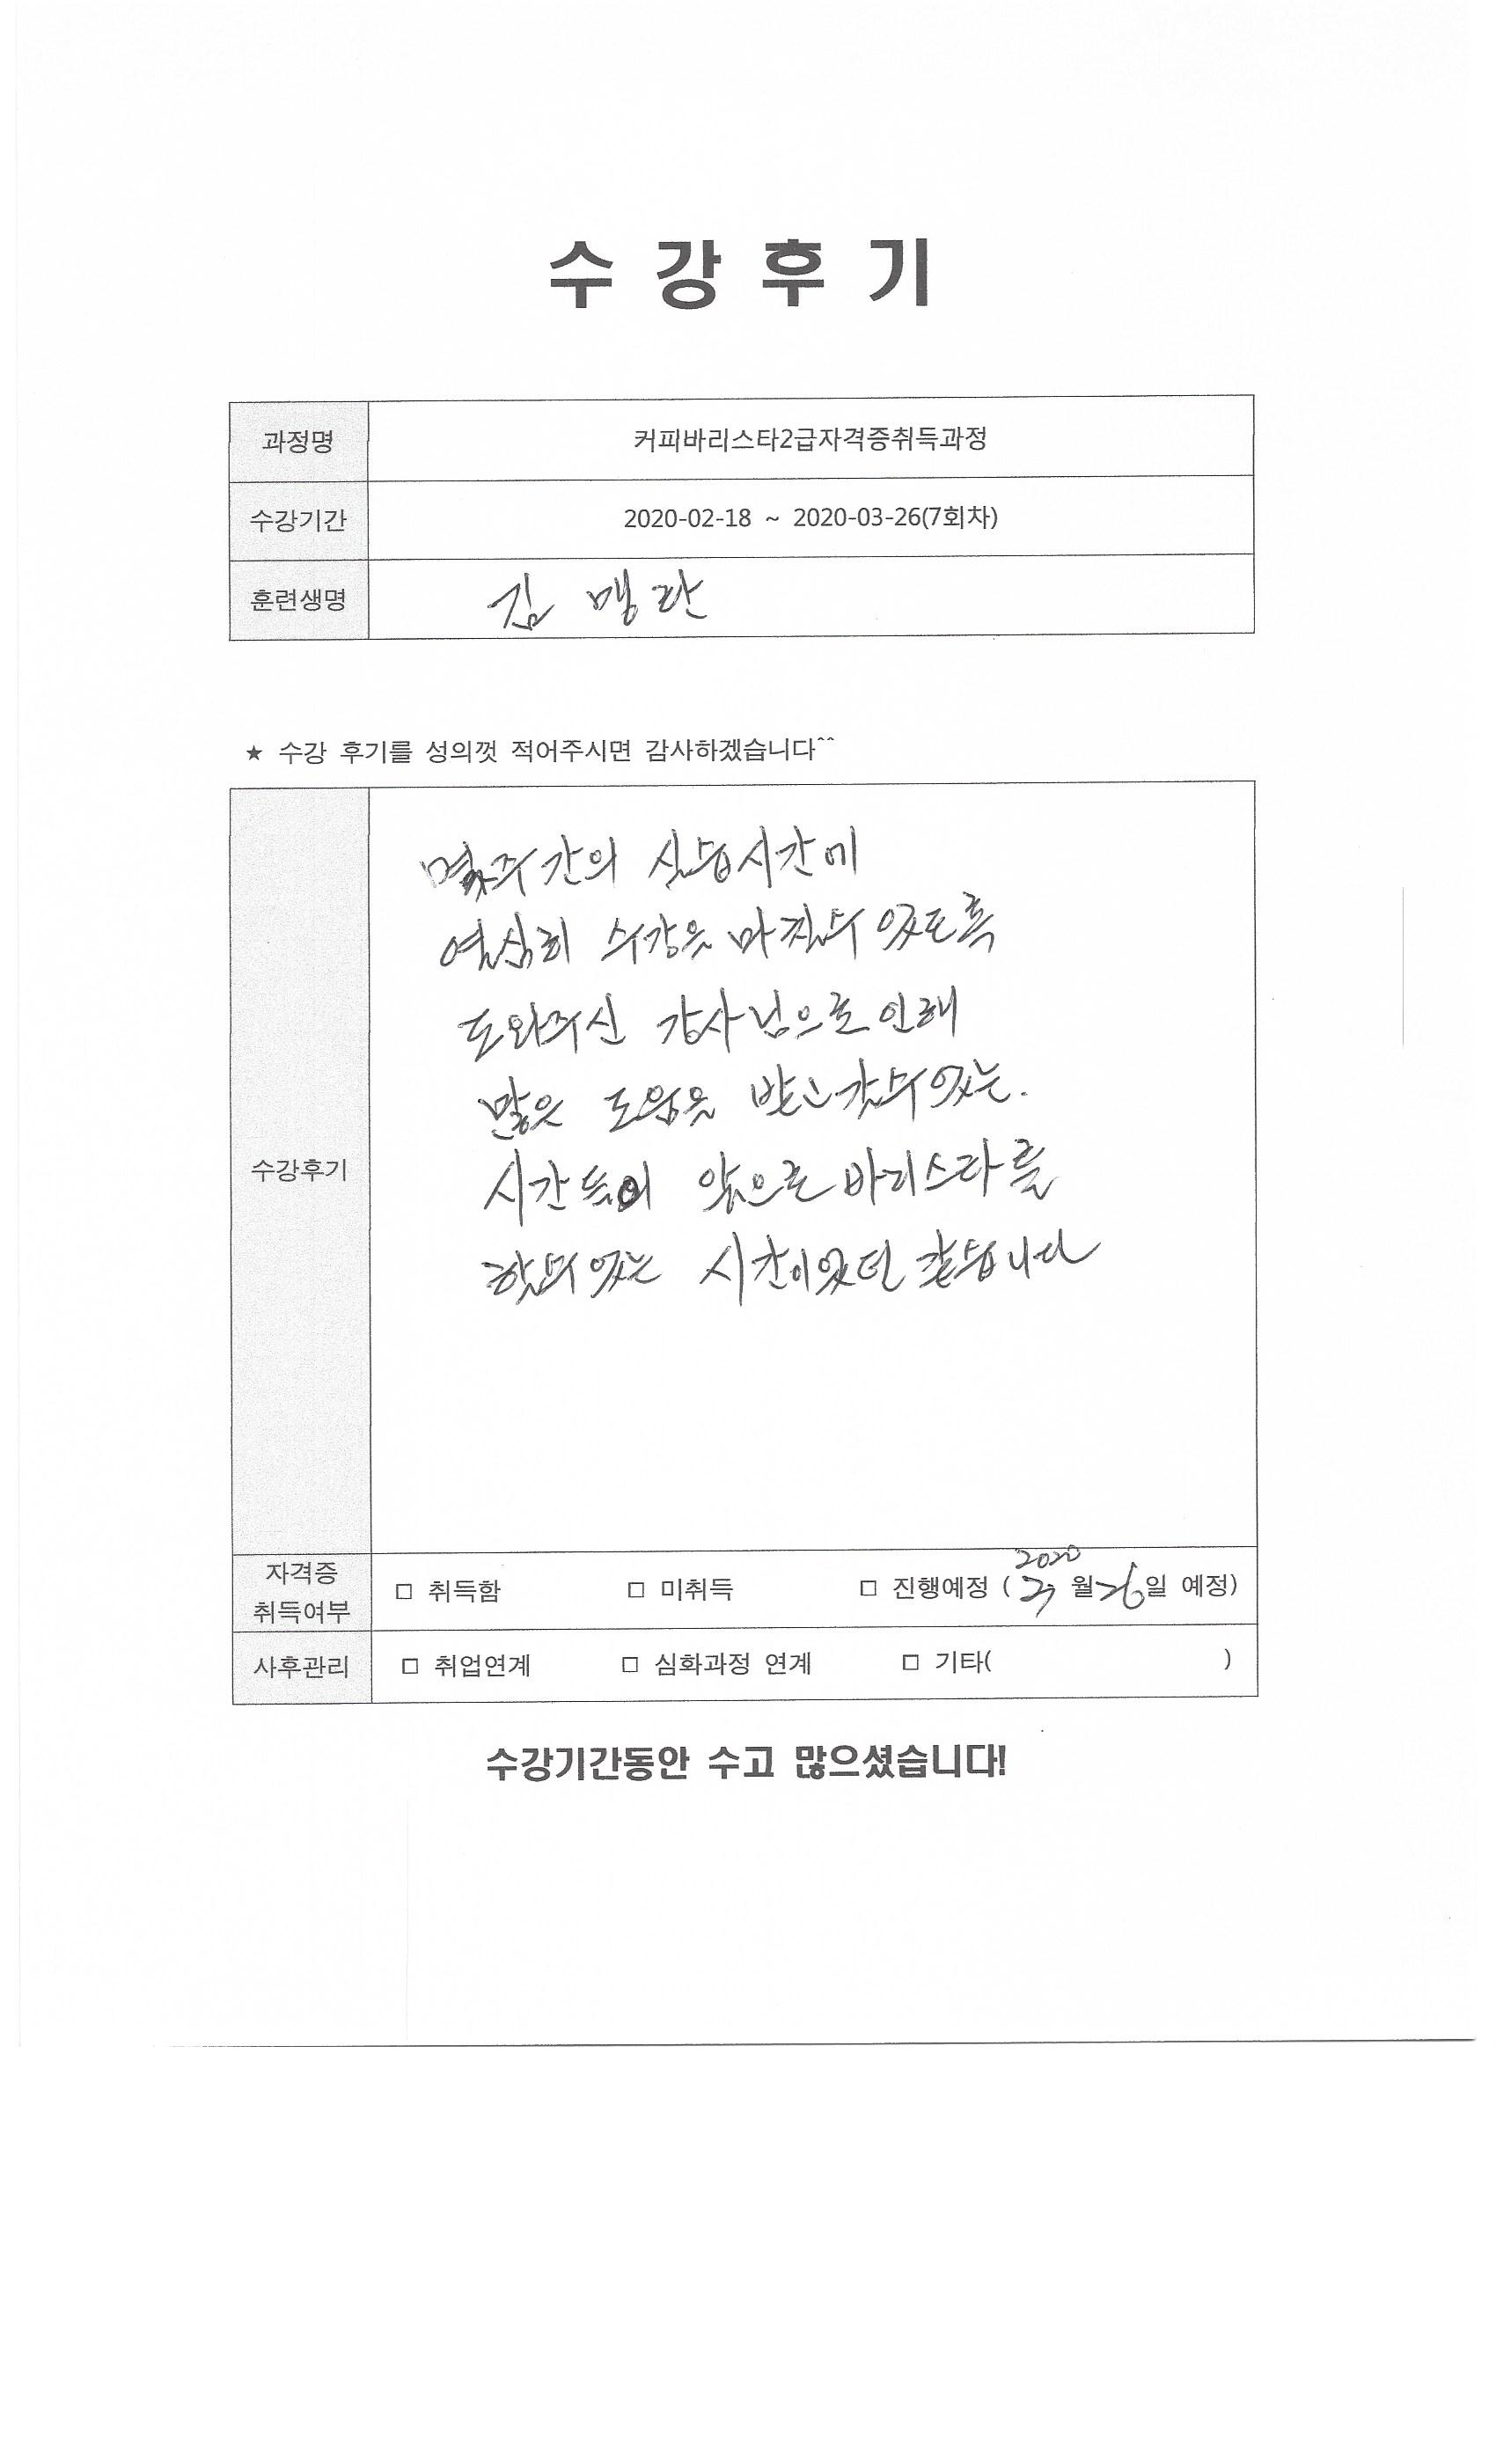 수강후기
과정명 커피바리스타2급자격증취득과정
수강기간 2020-02-18 ~ 2020-03-26(7회차)
훈련생명 김맹란
★ 수강 후기를 성의껏 적어주시면 감사하겠습니다^^
수강후기
몇주간의 실습시간에
열심히 수강을 마칠수 있도록
도와주신 강사님으로 인해
많은 도움을 받는 갈수있는.
시간들이 앞으로 바리스타를
할수있는 시간이었던 같습니다
자격증 취득여부 □ 취득함 □ 미취득 □ 진행예정 ( 2020 월 26일 예정)
사후관리 □ 취업연계 □ 심화과정 연계 □ 기타( )
수강기간동안 수고 많으셨습니다!